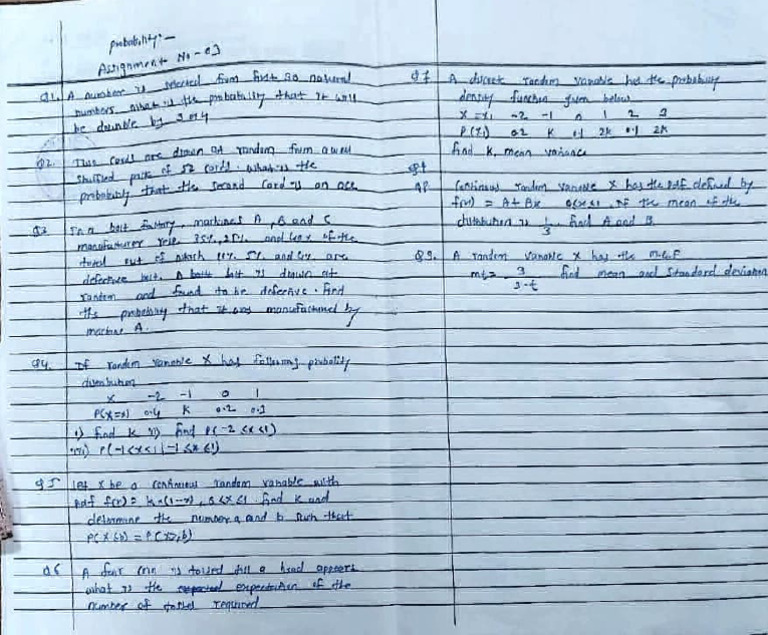 probability:-
Assignment No - 03
Q1. A number is selected from first 30 natural
numbers what is the probability that it will
be divisible by 3 or 4
Q2. Two cards are drawn at random from a well
shuffled pack of 52 cards. what is the
probability that the second card is an ace
Q3. In a bolt factory, machines A, B and C
manufacturer 35%, 25% and 40% of the
total out of which 5% and 4% are
defective bolt. A bolt is drawn at
random and found to be defective. find
the probability that it was manufactured by
machine A.
Q4. If random variable X has following probability
distribution
X -2 -1 0 1
P(X=x) 0.4 K 0.2 0.3
i) find K ii) find P(-2 ≤ x < 1)
iii) P(-1<x<1 | -1≤x≤1)
Q5 let X be a continuous random variable with
pdf f(x) = kx(1-x), 0<x<1 find K and
determine the number a and b such that
P(X≤b) = P(X≥b)
Q6 A fair coin is tossed till a head appears
what is the expectation of the
number of tosses required
Q7 A discrete random variable has the probability
density function given below
X = xi -2 -1 0 1 2 3
P(xi) 0.2 K 0.1 2K 0.1 2K
find K, mean variance
Q8
Q8 Continuous random variable X has the pdf defined by
f(x) = A + Bx 0≤x≤1. If the mean of the
distribution is 1/3, find A and B.
Q9. A random variable X has the m.G.F
mt = 3/3-t find mean and standard deviation